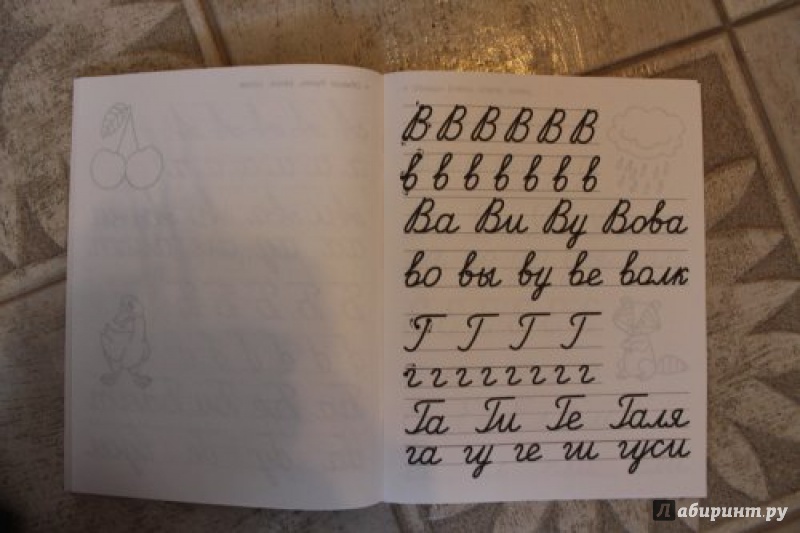 В В В В В В
в в в в в в в
Ва Ви Ву Вова
во вы ву ве волк
Г Г Г Г
г г г г г г г г
Га Ги Ге Галя
га гу ге ги гуси
Лабиринт.ру